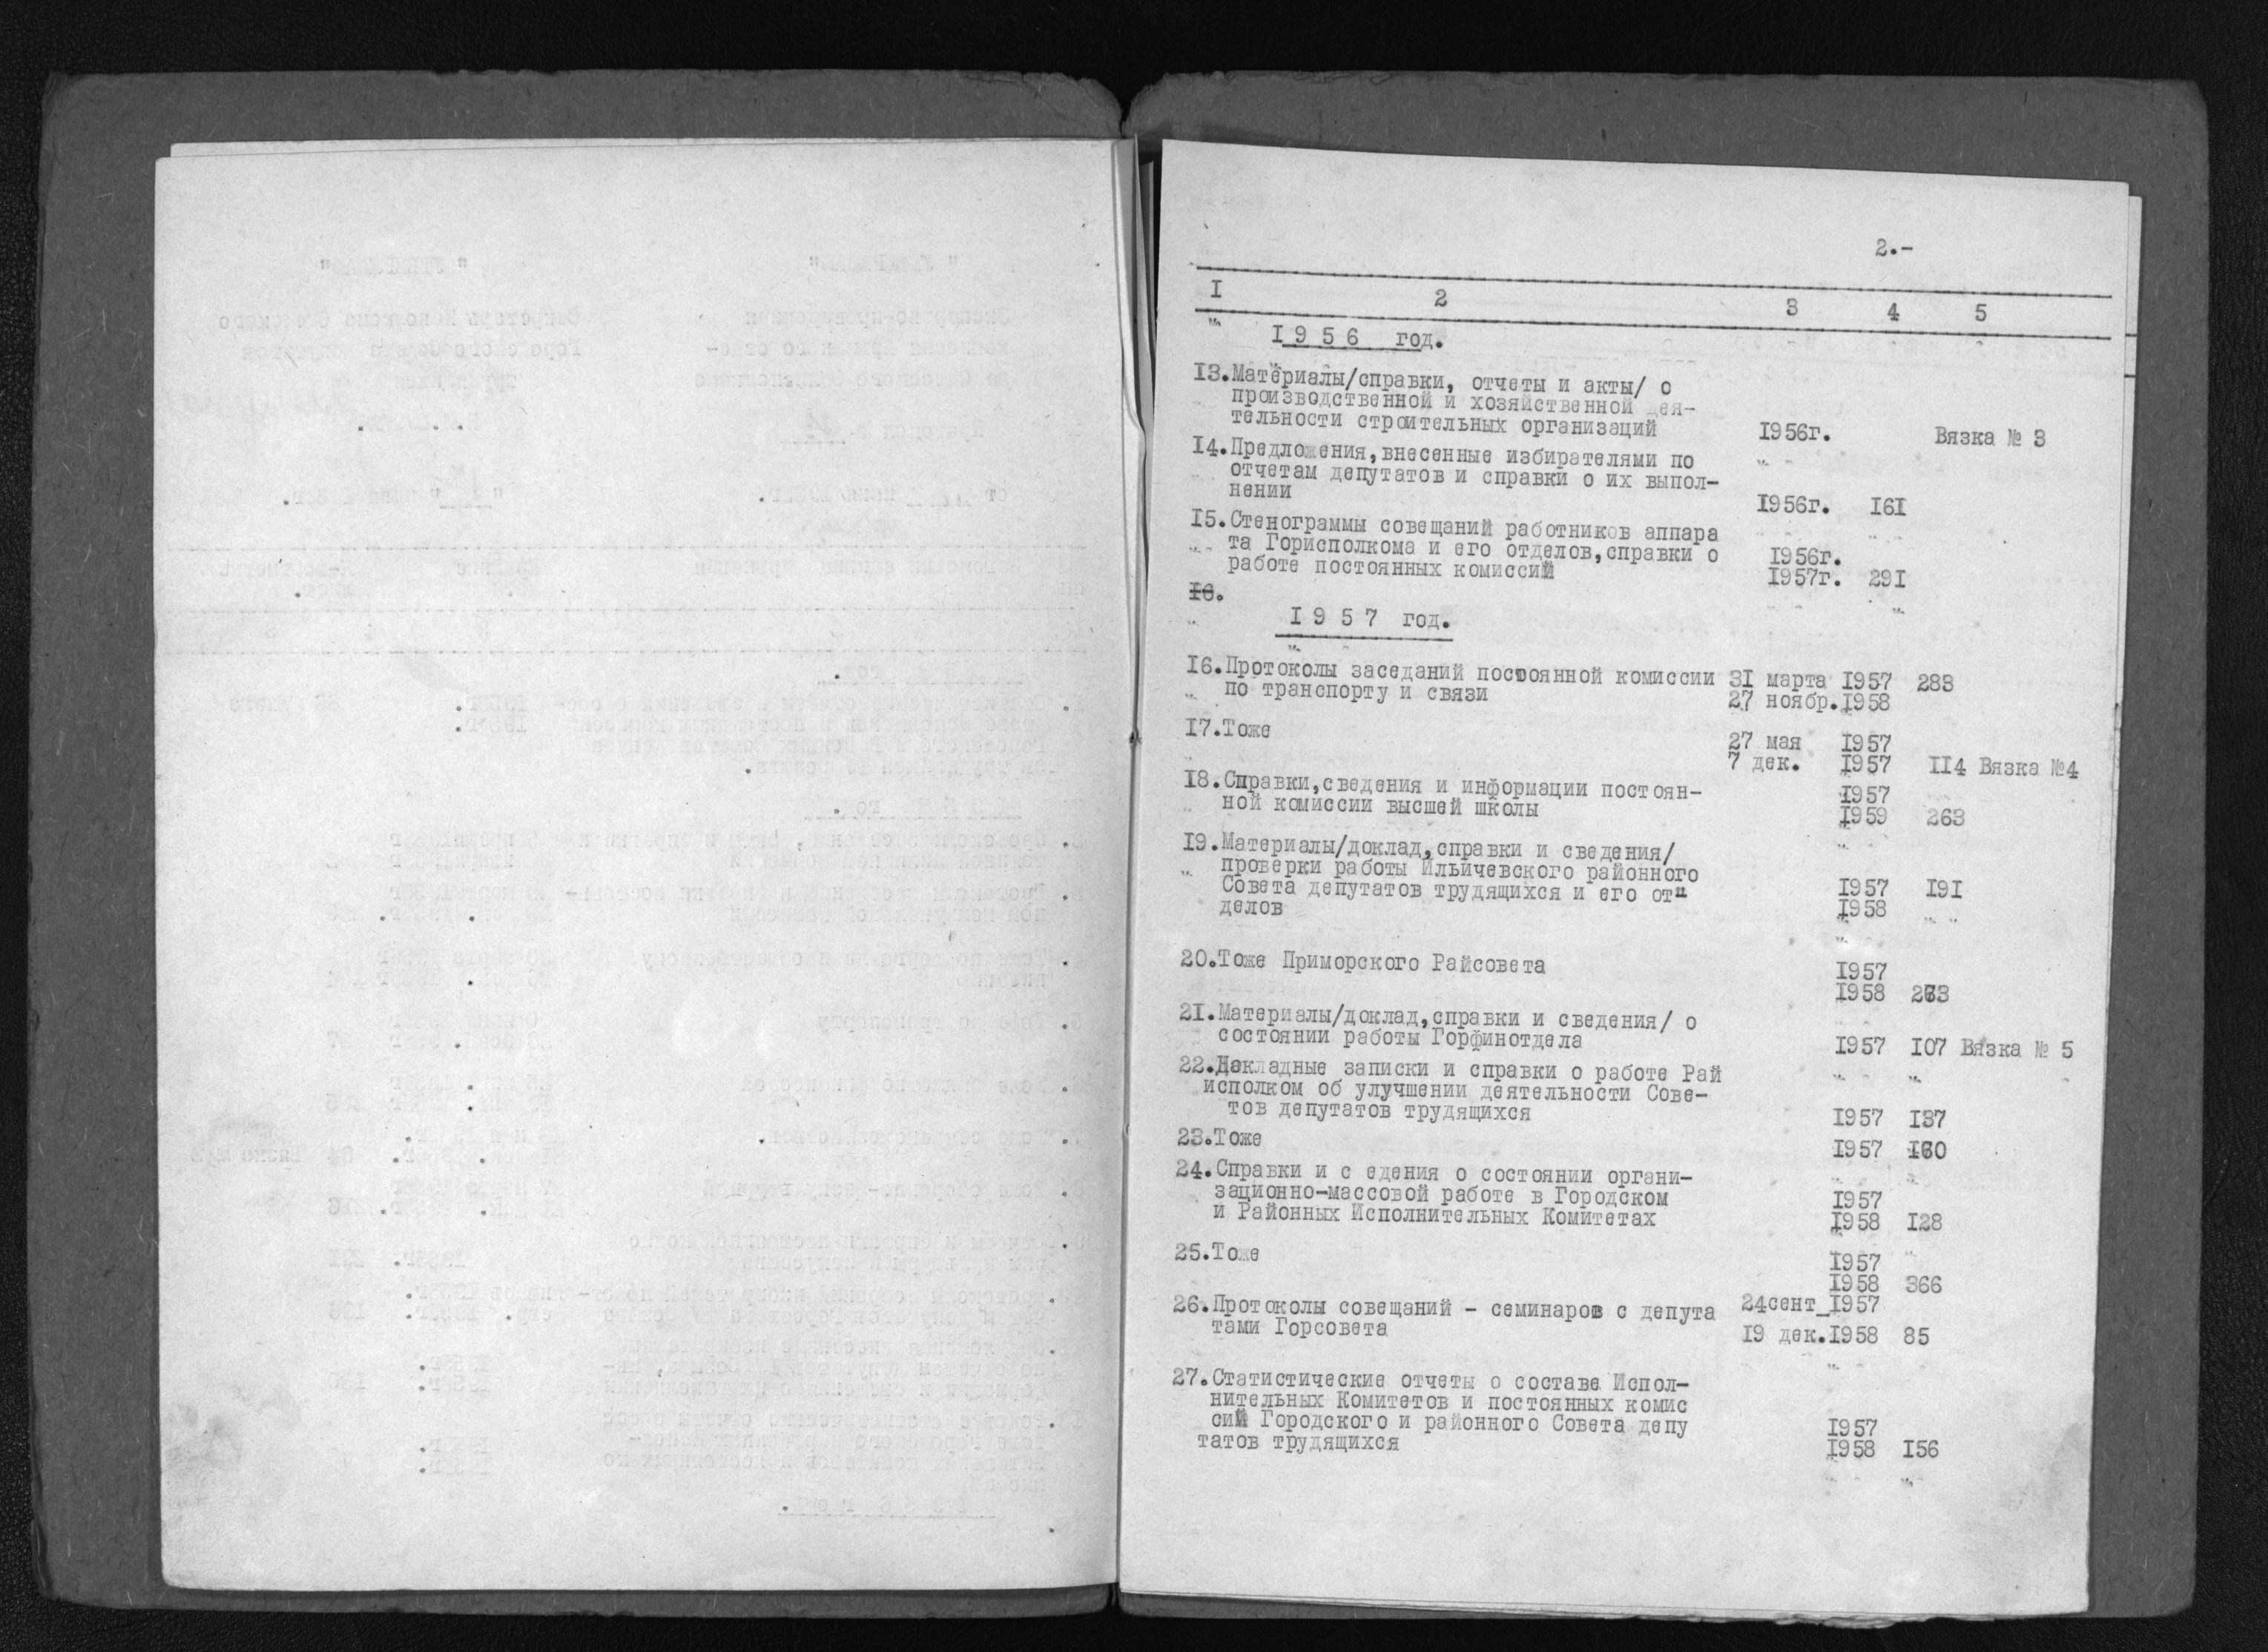 2.-
I 2 3 4 5
1956 год.
13.Материалы/справки, отчеты и акты/ о
производственной и хозяйственной дея-
тельности строительных организаций 1956г. Вязка № 3
14.Предложения,внесенные избирателями по
отчетам депутатов и справки о их выпол-
нении 1956г. 161
15.Стенограммы совещаний работников аппара
та Горисполкома и его отделов,справки о 1956г.
работе постоянных комиссий 1957г. 291
16.
1957 год.
16.Протоколы заседаний постоянной комиссии 31 марта 1957 283
по транспорту и связи 27 ноябр.1958
17.Тоже 27 мая 1957
7 дек. 1957 114 Вязка №4
18.Справки,сведения и информации постоян- 1957
ной комиссии высшей школы 1959 263
19.Материалы/доклад,справки и сведения/
проверки работы Ильичевского районного
Совета депутатов трудящихся и его от- 1957 191
делов 1958
20.Тоже Приморского Райсовета 1957
1958
21.Материалы/доклад,справки и сведения/ о
состоянии работы Горфинотдела 1957 107 Вязка № 5
22.Докладные записки и справки о работе Рай
исполком об улучшении деятельности Сове-
тов депутатов трудящихся 1957 137
23.Тоже 1957
24.Справки и с едения о состоянии органи-
зационно-массовой работе в Городском 1957
и Районных Исполнительных Комитетах 1958 128
25.Тоже 1957
1958 366
26.Протоколы совещаний - семинаров с депута 24сент_1957
тами Горсовета 19 дек.1958 85
27.Статистические отчеты о составе Испол-
нительных Комитетов и постоянных комис
сий Городского и районного Совета депу 1957
татов трудящихся 1958 156